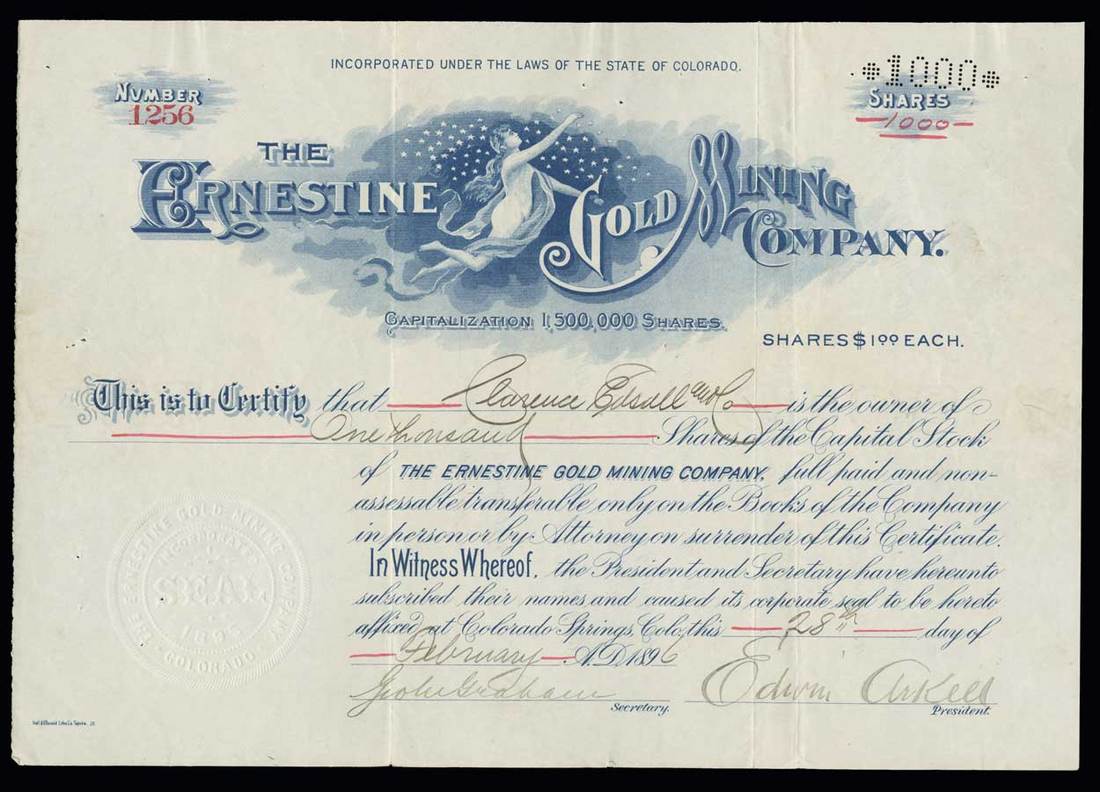 INCORPORATED UNDER THE LAWS OF THE STATE OF COLORADO.
*1000*
NUMBER
1256
SHARES
1000
THE
ERNESTINE GOLD MINING
COMPANY.
CAPITALIZATION 1,500,000 SHARES.
SHARES $1.00 EACH.
This is to Certify that Clarence Edsall and Co is the owner of
One thousand Shares of the Capital Stock
of THE ERNESTINE GOLD MINING COMPANY, full paid and non-
assessable transferable only on the Books of the Company
in person or by Attorney on surrender of this Certificate.
In Witness Whereof, the President and Secretary have hereunto
subscribed their names and caused its corporate seal to be hereto
affixed at Colorado Springs, Colo, this 28th day of
February A.D. 1896
John Graham Edwin Arkell
Secretary. President.
THE ERNESTINE GOLD MINING COMPANY
INCORPORATED
SEAL
COLORADO